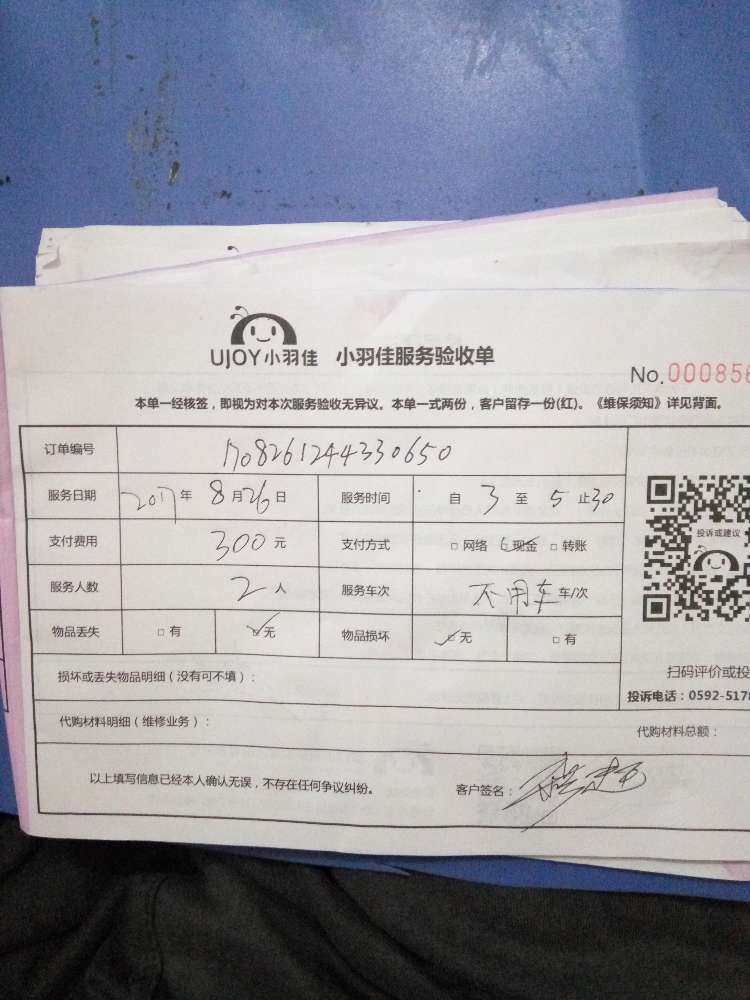 UJOY小羽佳 小羽佳服务验收单
No.000856
本单一经核签，即视为对本次服务验收无异议。本单一式两份，客户留存一份(红)。《维保须知》详见背面。
订单编号 170826124433​0650
服务日期 2017年 8月26日 服务时间 自 3 至 5 止30
支付费用 300元 支付方式 □ 网络 □ 现金 □ 转账
服务人数 2 人 服务车次 不用车 车/次
物品丢失 □ 有 □ 无 物品损坏 □ 无 □ 有
投诉或建议
扫码评价或投
投诉电话：0592-5178
损坏或丢失物品明细（没有可不填）：
代购材料明细（维修业务）：
代购材料总额：
以上填写信息已经本人确认无误，不存在任何争议纠纷。 客户签名：